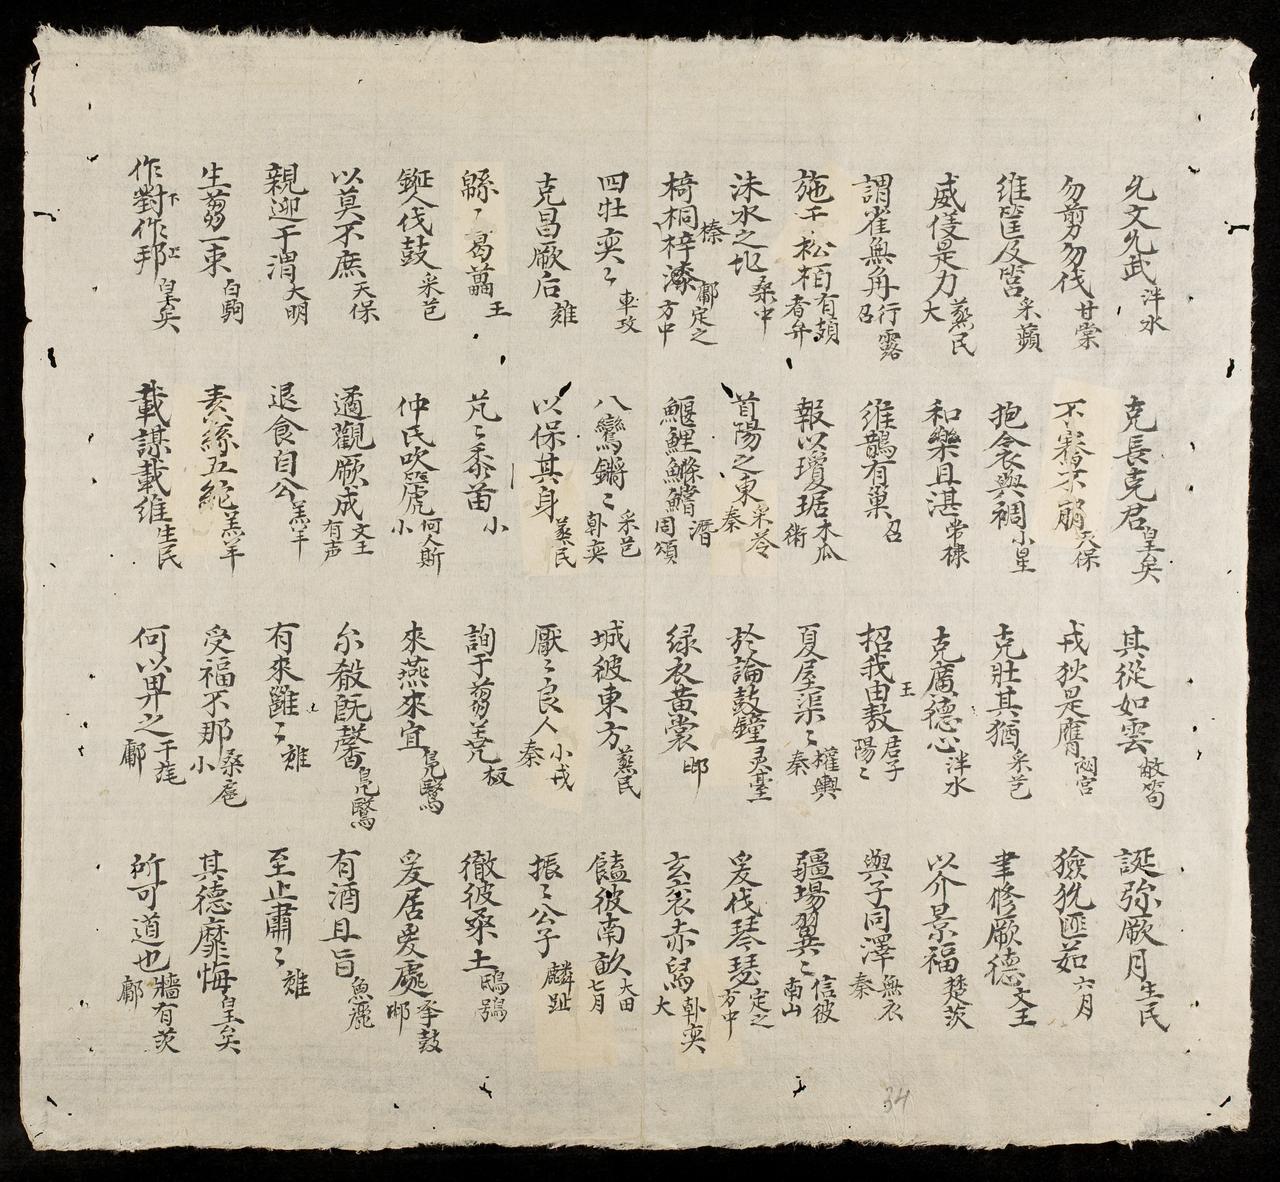 允文允武 泮水 克長克君 皇矣 其從如雲 敝笱 誕弥厥月 生民
勿翦勿伐 甘棠 不騫不崩 天保 戎狄是膺 閟宮 獫狁匪茹 六月
維筐及筥 采蘋 抱衾與裯 小星 克壯其猶 采芑 聿修厥德 文王
威儀是力 蒸民 大 和樂且湛 常棣 克廣德心 泮水 以介景福 楚茨
謂雀無角 行露 召 維鵲有巢 召 招我由敖 王 君子陽〻 與子同澤 無衣 秦
施于松栢 有頍者弁 報以瓊琚 木瓜 衛 夏屋渠〻 權輿 秦 疆場翼〻 信彼南山
沬水之北 桑中 首陽之東 采苓 秦 於論鼓鐘 灵臺 爰伐琴瑟 定之方中
椅桐梓漆 榛 鄘定之方中 鰋鯉鰷鱨 潛 周頌 緑衣黄裳 邶 玄衮赤舄 韓奕 大
四牡奕〻 車攻 八鸞鏘〻 采芑 韓奕 城彼東方 蒸民 饁彼南畝 大田 七月
克昌厥后 雝 以保其身 蒸民 厭〻良人 小戎 秦 振〻公子 麟趾
緜〻葛藟 王 芃〻黍苗 小 詢于蒭蕘 板 徹彼桑土 鴟鴞
鉦人伐鼓 采芑 仲氏吹篪 何人斯 小 來燕來宜 鳧鷖 爰居爰處 擊鼓 邶
以莫不庶 天保 遹觀厥成 文王有声 尔殽既馨 鳧鷖 有酒且旨 魚麗
親迎于渭 大明 退食自公 羔羊 有來雝〻 雝 至止肅〻 雝
生蒭一束 白駒 素絲五紽 羔羊 受福不那 桑扈 小 其德靡悔 皇矣
作對作邦 下 上 皇矣 載謀載維 生民 何以畀之 干旄 鄘 所可道也 牆有茨 鄘
34